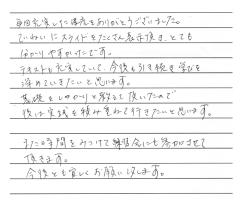 毎回充実した講座をありがとうございました。
ていねいにスライドをたくさん表示頂き、とても
分かりやすかったです。
テキストも充実していて、今後も引き続き学びを
深めていきたいと思います。
基礎をしっかりと教えて頂いたので
後は実践を積み重ねて行きたいと思います。
また時間をみつけて練習会にも参加させて
頂きます。
今後とも宜しくお願い致します。